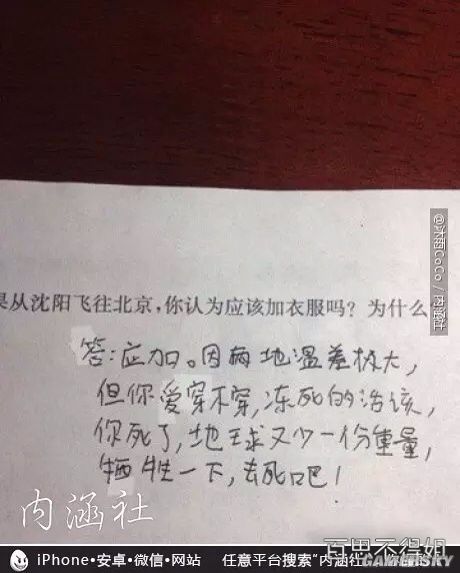 果从沈阳飞往北京,你认为应该加衣服吗?为什么
答:应加。因两地温差极大,
但你爱穿不穿,冻死的活该,
你死了,地球又少一份重量,
牺牲一下,去死吧!
内涵社
百思不得姐
iPhone•安卓•微信•网站 任意平台搜索“内涵社”
GAMERSKY